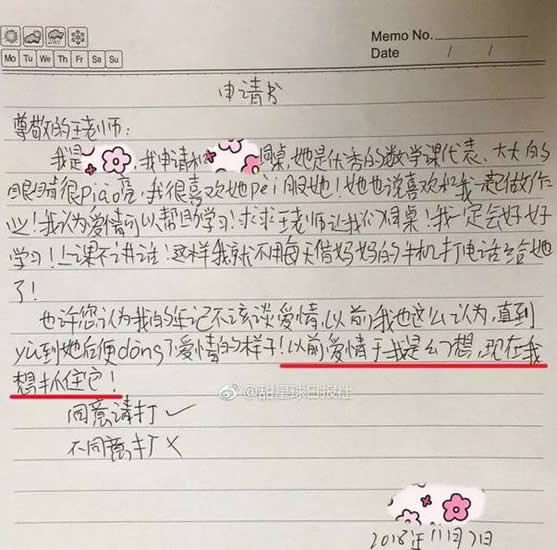 Memo No.
Mo Tu We Th Fr Sa Su
Date / /
申请书
尊敬的王老师：
我是，我申请和同桌，她是优秀的数学课代表、大大的
眼睛很piāo亮，我很喜欢她pei服她！她也说喜欢和我一起做作
业！我认为爱情可以帮助学习！求求王老师让我们同桌！我一定会好好
学习！上课不讲话！这样我就不用每天借妈妈的手机打电话给她
了！
也许您认为我的年记不该谈爱情，以前我也这么认为，直到
yù到她后便dǒng了爱情的样子！以前爱情于我是幻想，现在我
想抓住它！
@甜星球日报社
同意请打✓
不同意打×
2018年11月7日